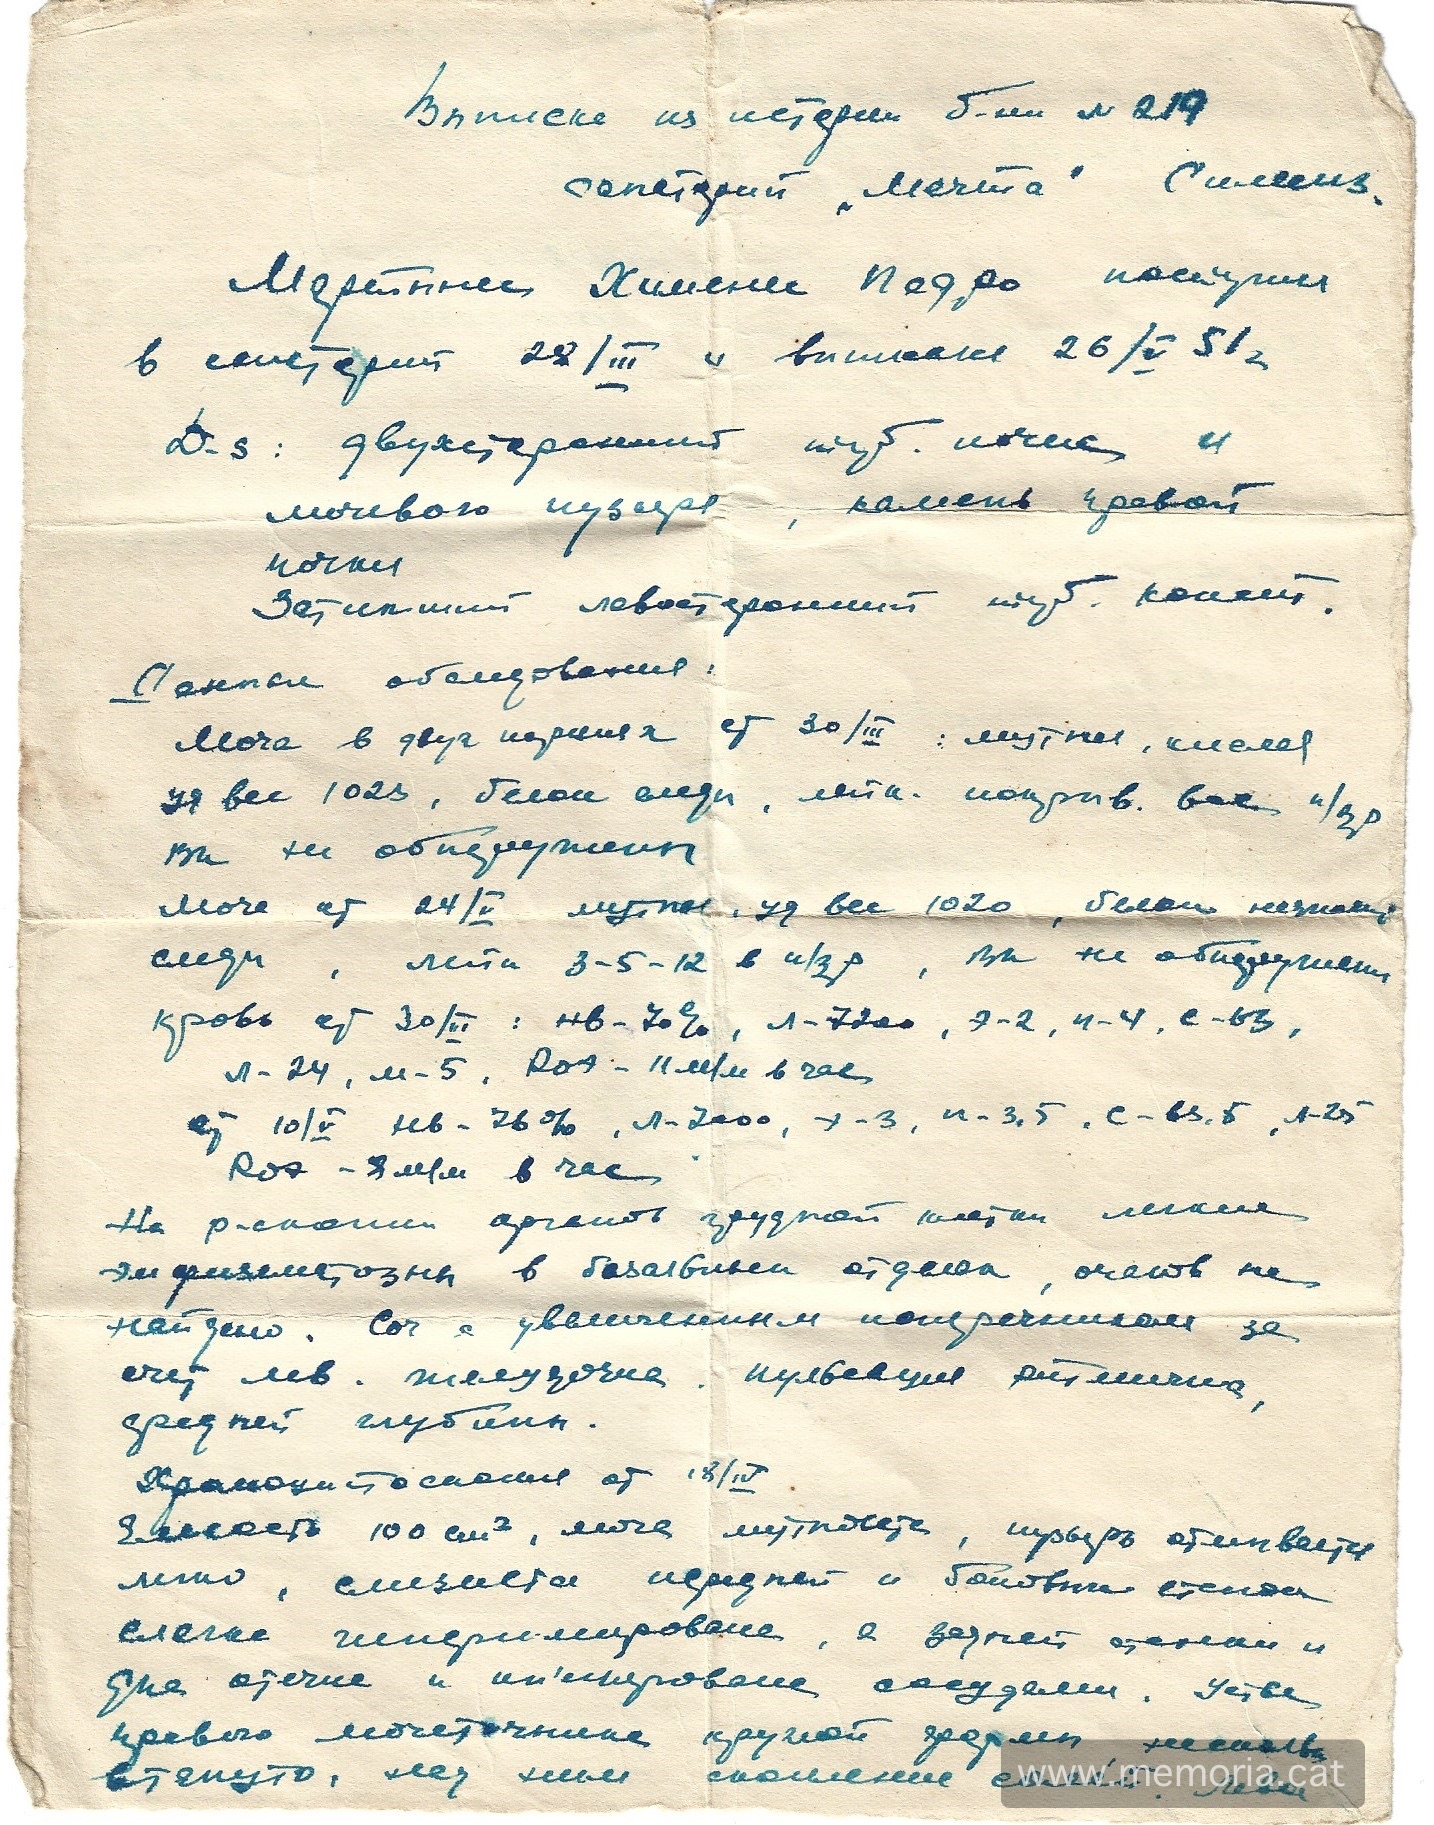 Выписка из истории б-ни № 219
санаторий „Мечта" Симеиз.
Мартинес Хименес Педро поступил
в санаторий 28/III и выписан 26/V 51 г
D-s: двухсторонний туб. почек и
мочевого пузыря, камень правой
почки
Затихший левосторонний туб.
Данные обследования:
Моча в двух порциях от 30/III: мутная, кислая
уд вес 1023, белок следы, лейк. покрыв. все п/зр
ВК не обнаружены
Моча от 24/V мутная, уд вес 1020, белок незначит
следы, лейк 3-5-12 в п/зр, ВК не обнаружены
Кровь от 30/III: Нв-70%, Л-7200, Э-2, п-4, с-63,
л-24, м-5, РОЭ - 11 м/м в час
от 10/V Нв-76%, Л-7000, э-3, п-3,5, с-63,5, л-25
РОЭ - 8 м/м в час
На р-скопии органов грудной клетки легкие
эмфизематозны в базальных отделах, очагов не
найдено. Cor с увеличенным поперечником за
счет лев. желудочка. Пульсация ритмична,
средней глубины.
Хромоцистоскопия от 18/IV
Емкость 100 см³, моча мутновата, пузырь отмывается
легко, слизистая передней и боковых стенок
слегка гиперемирована, а задней стенки и
дна отечна и инъецирована сосудами. Устье
правого мочеточника круглой формы несколько
втянуто, над ним скопление слизи. Левое
www.memoria.cat